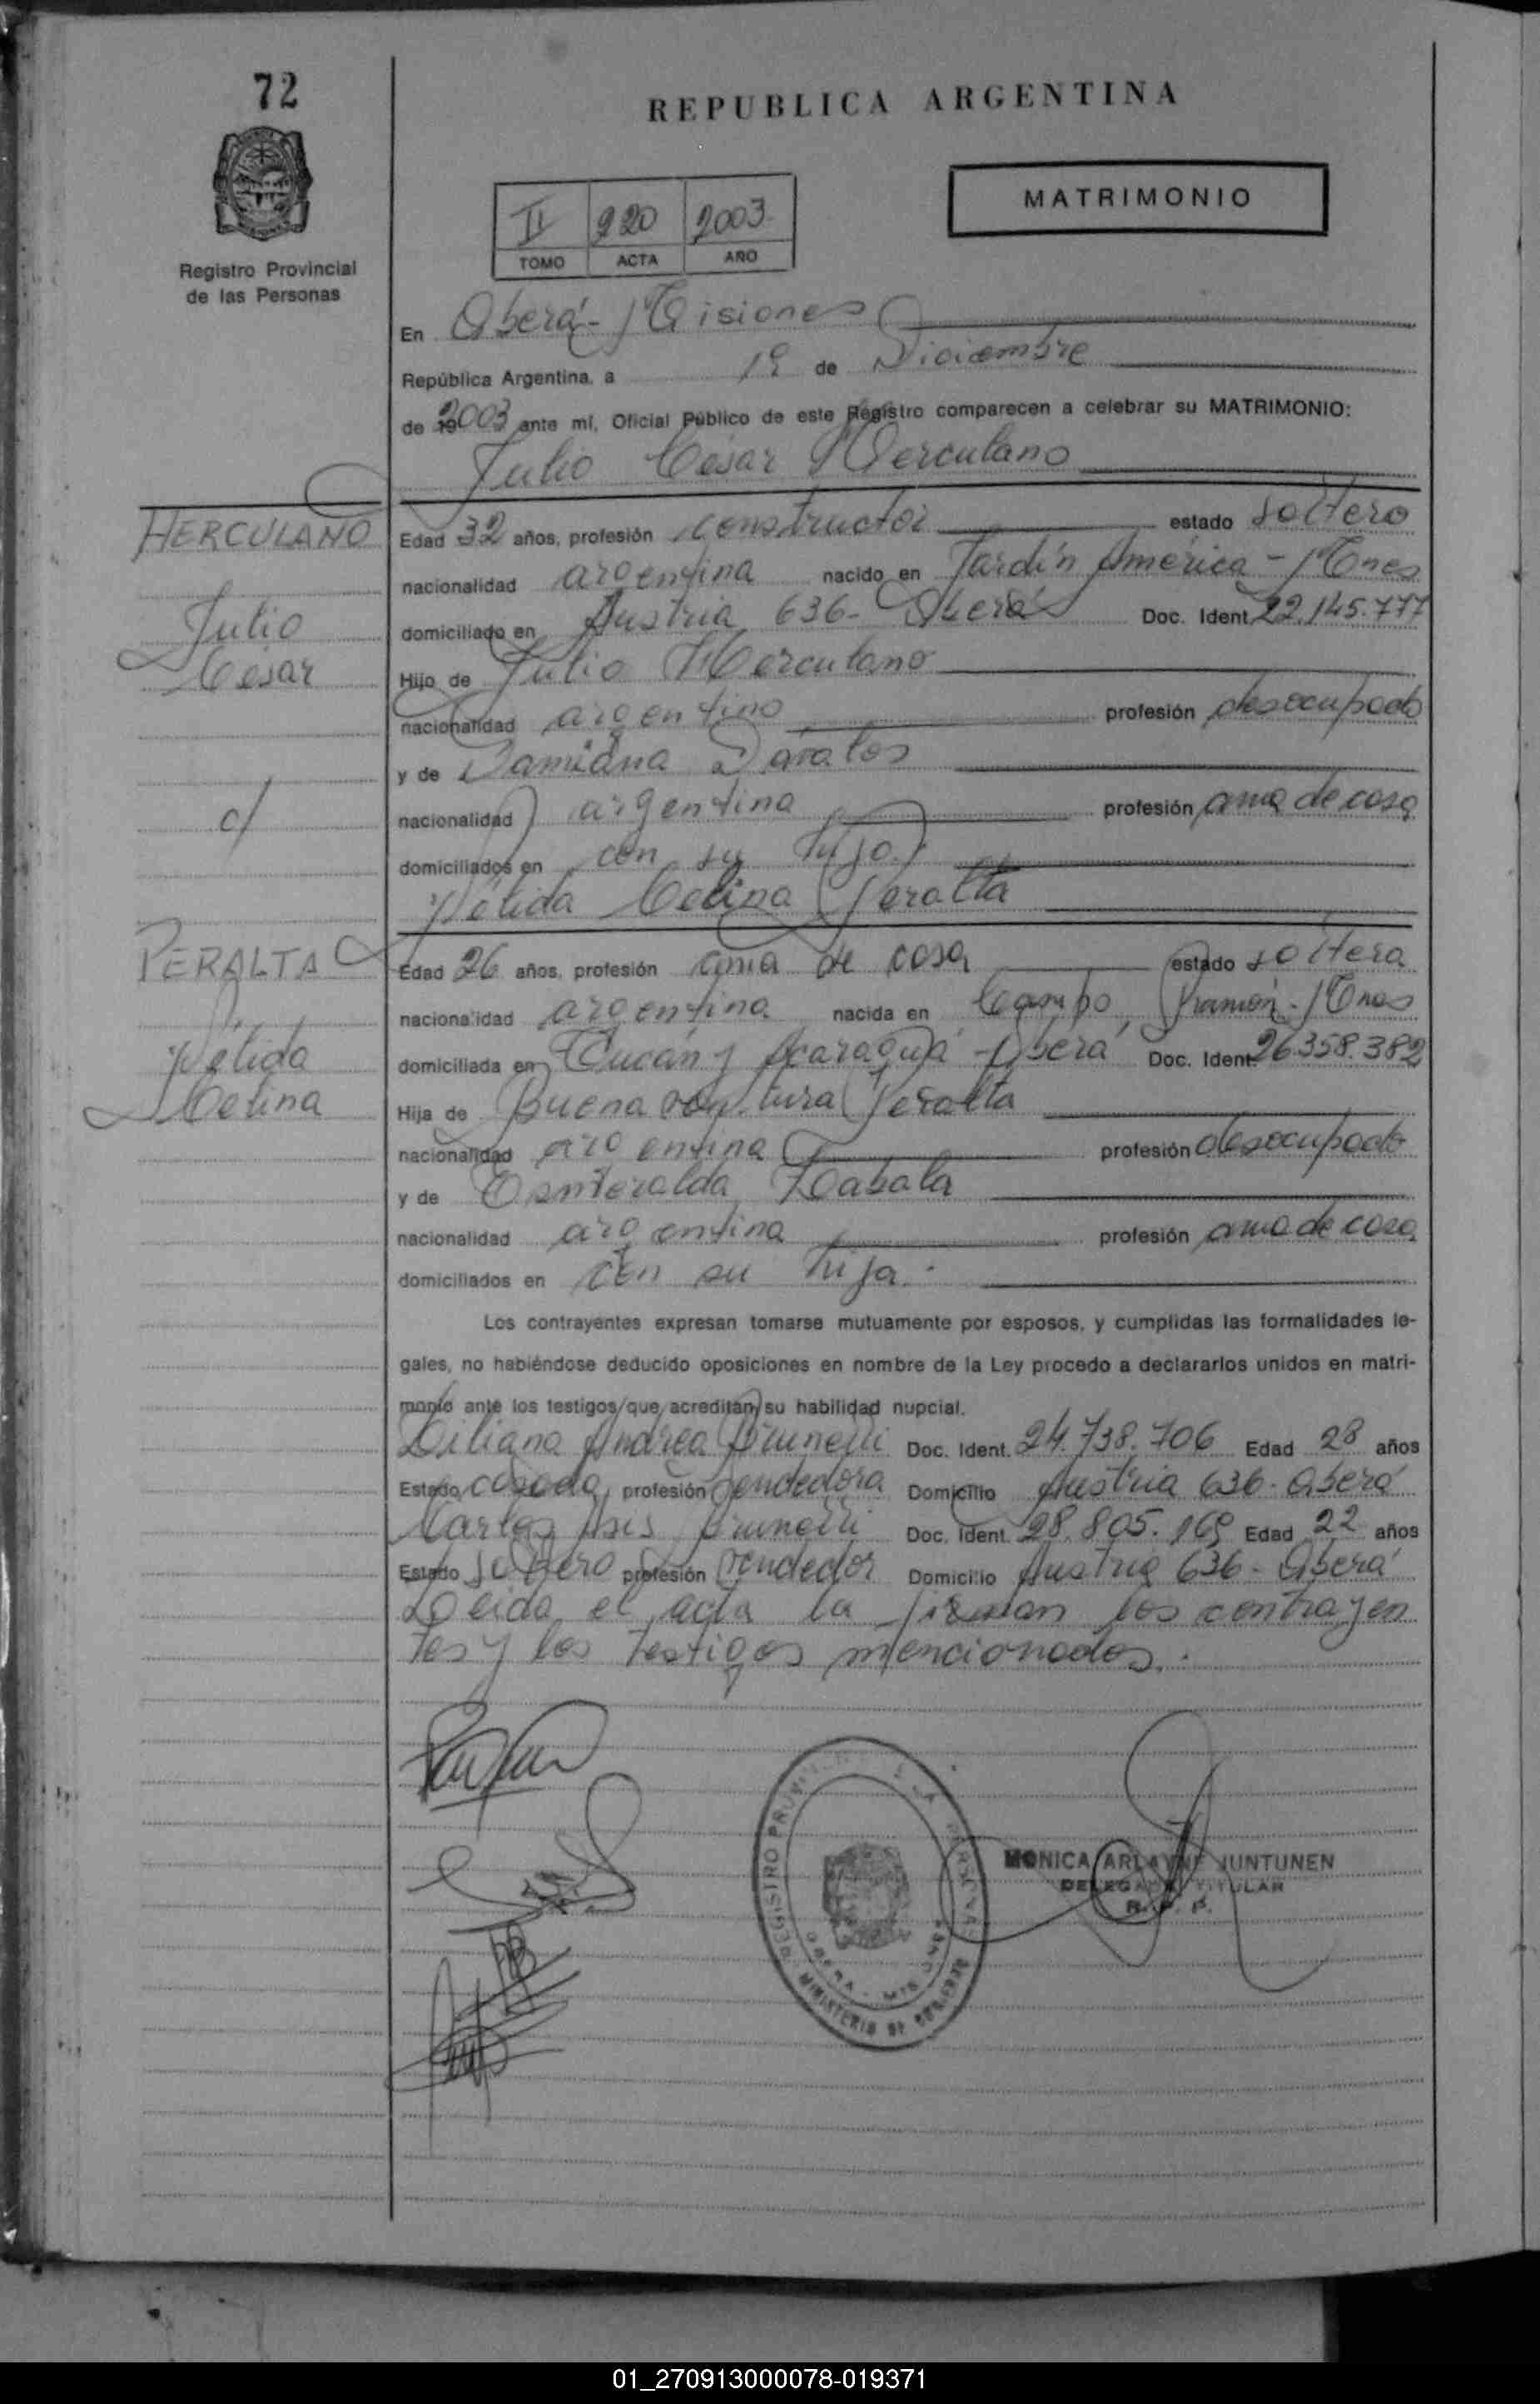 72
REPUBLICA ARGENTINA
MATRIMONIO
II 220 2003
TOMO ACTA AÑO
Registro Provincial
de las Personas
En Oberá - Misiones
República Argentina, a 19 de Diciembre
de 2003 ante mí, Oficial Público de este Registro comparecen a celebrar su MATRIMONIO:
Julio César Herculano
HERCULANO
Julio
César
c/
Edad 32 años, profesión constructor estado soltero
nacionalidad argentina nacido en Jardín América - Mnes
domiciliado en Austria 636 - Oberá Doc. Ident. 22.145.777
Hijo de Julio Herculano
nacionalidad argentino profesión desocupado
y de Damiana Dávalos
nacionalidad argentina profesión ama de casa
domiciliados en con su hijo.
Nélida Celina Peralta
PERALTA
Nélida
Celina
Edad 26 años, profesión ama de casa estado soltera
nacionalidad argentina nacida en Campo Ramón - Mnes
domiciliada en Tucán y Acaraguá - Oberá Doc. Ident. 26.358.382
Hija de Buenaventura Peralta
nacionalidad argentina profesión desocupado
y de Esmeralda Zabala
nacionalidad argentina profesión ama de casa
domiciliados en con su hija.
Los contrayentes expresan tomarse mutuamente por esposos, y cumplidas las formalidades le-
gales, no habiéndose deducido oposiciones en nombre de la Ley procedo a declararlos unidos en matri-
monio ante los testigos que acreditan su habilidad nupcial.
Liliana Andrea Brunelli Doc. Ident. 24.738.706 Edad 28 años
Estado casada profesión vendedora Domicilio Austria 636 - Oberá
Carlos Brunelli Doc. Ident. 28.805.169 Edad 22 años
Estado soltero profesión vendedor Domicilio Austria 636 - Oberá
Leída el acta la firman los contrayen
tes y los testigos mencionados.
REGISTRO PROVINCIAL DE LAS PERSONAS
MINISTERIO DE GOBIERNO
MONICA ARLAYNE JUNTUNEN
DELEGADA TITULAR
R. P. P.
01_270913000078-019371